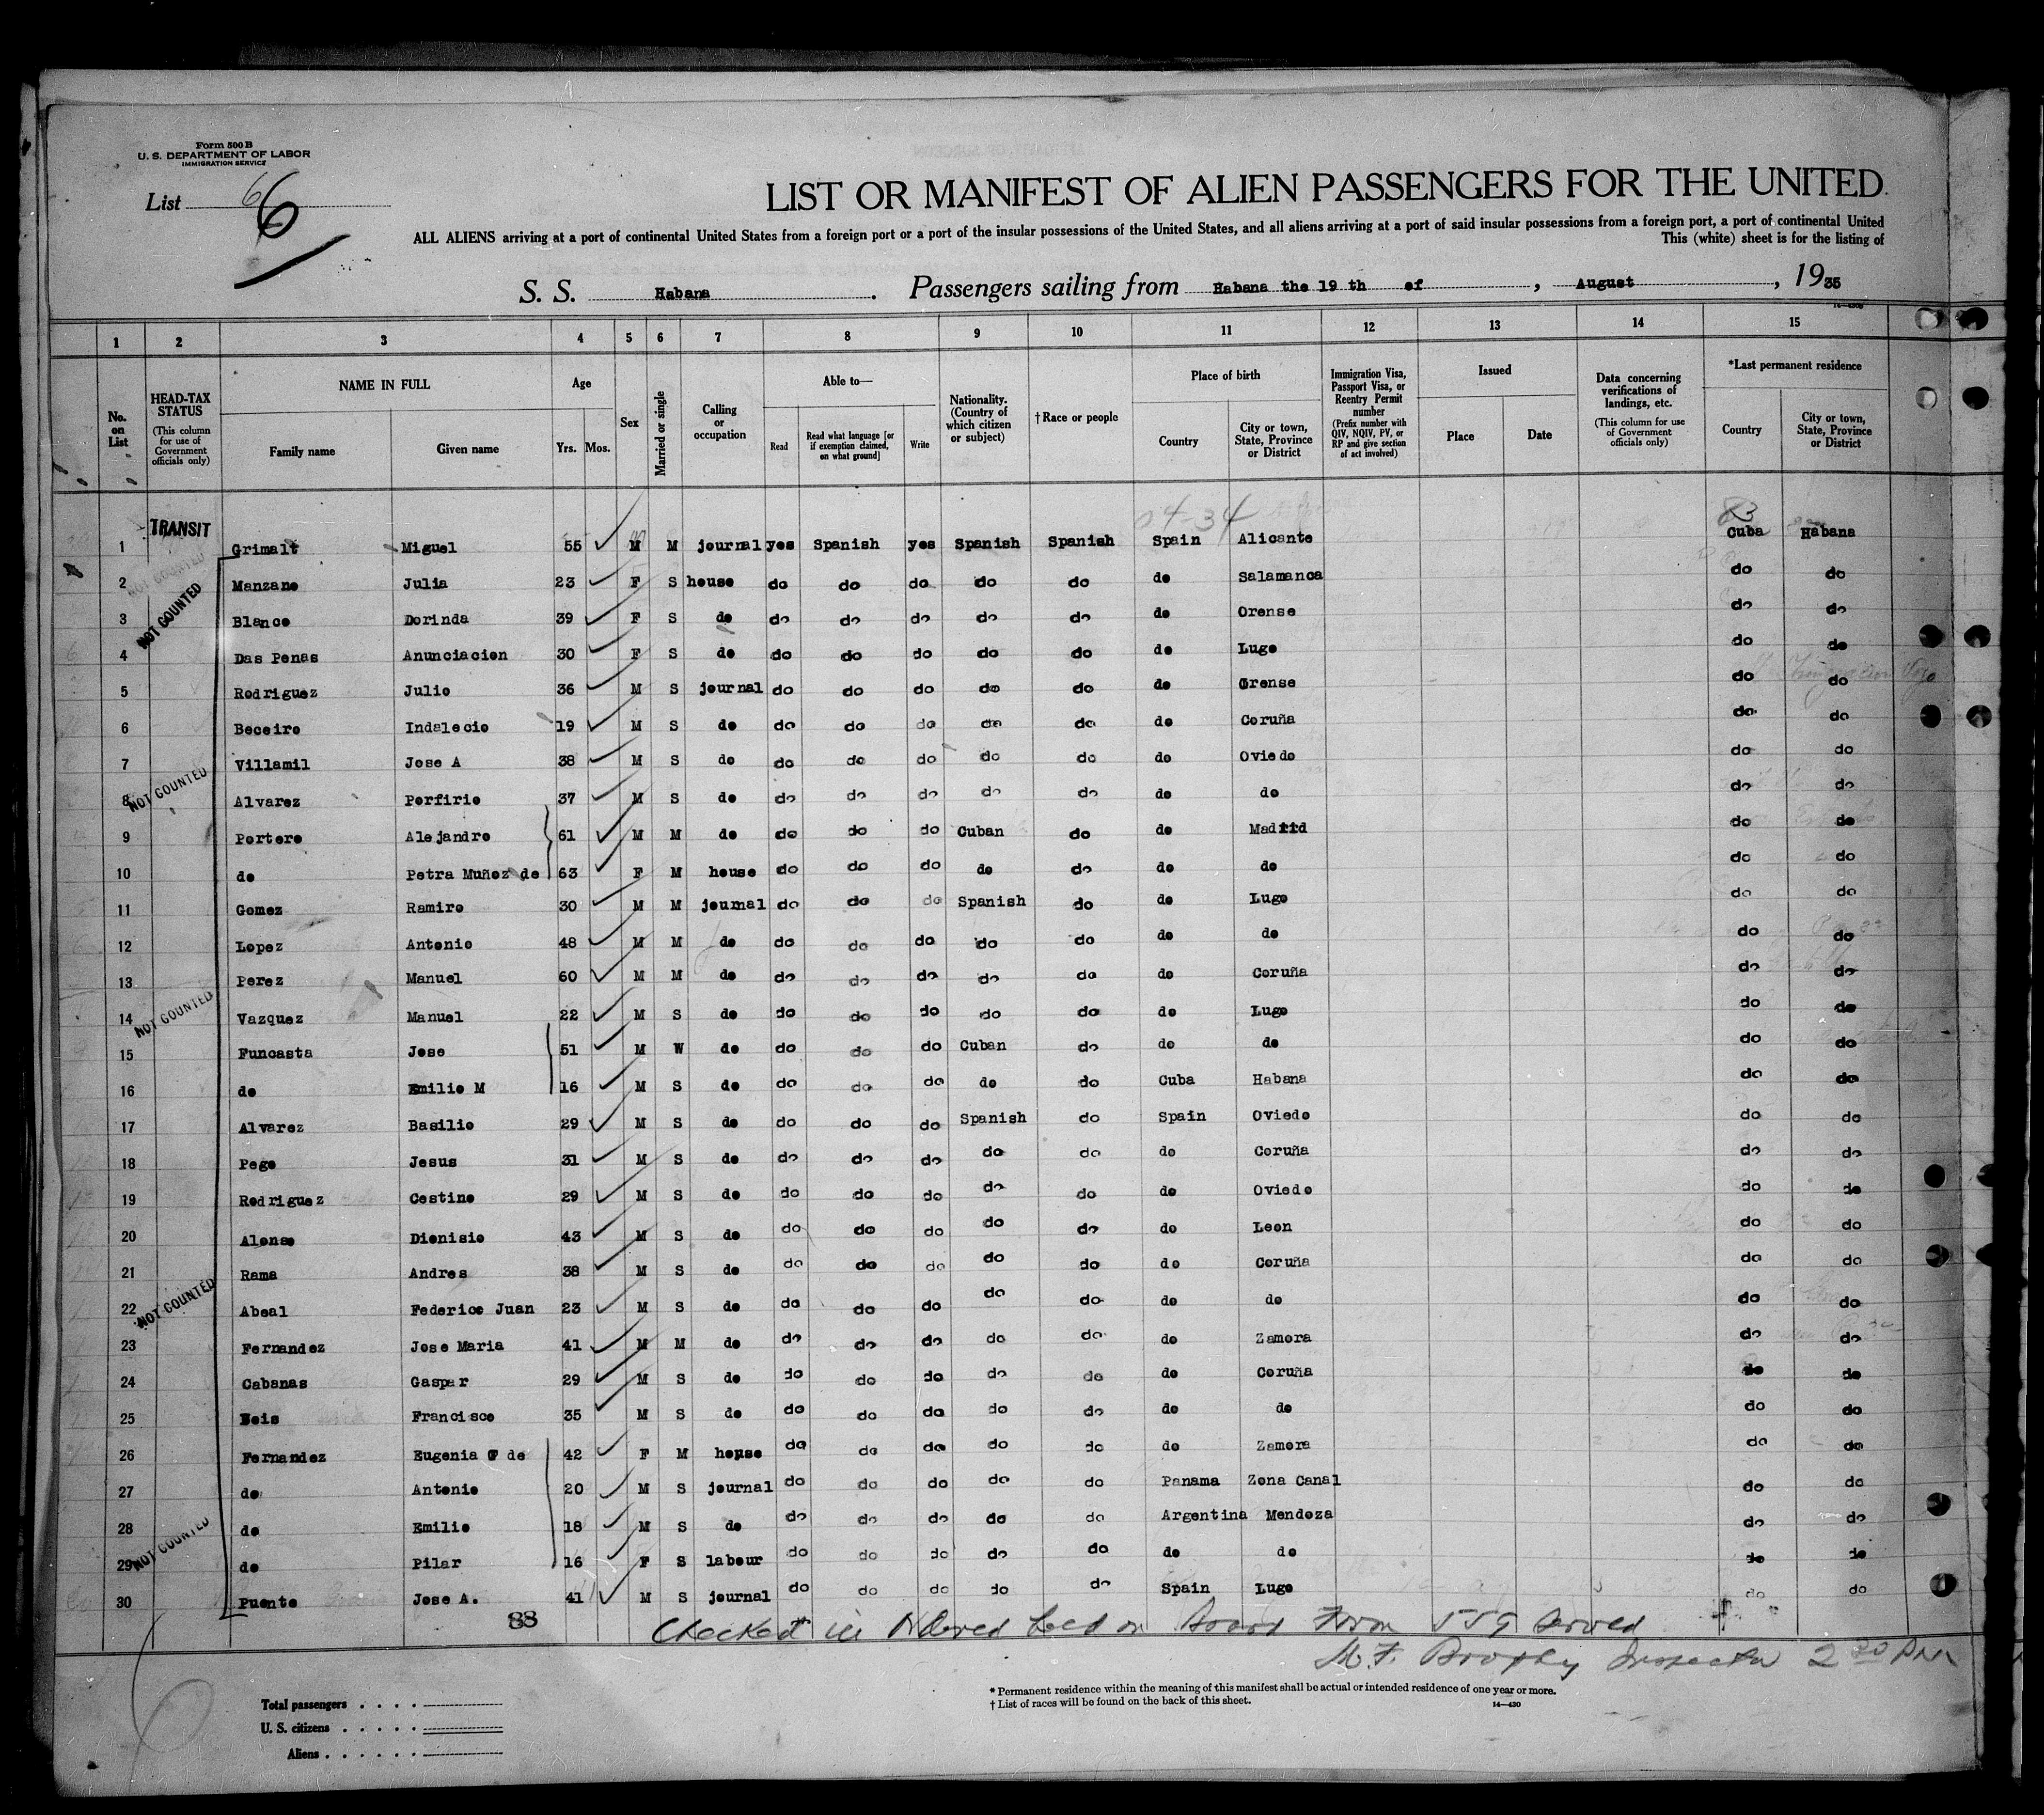 Form 500 B
U. S. DEPARTMENT OF LABOR
IMMIGRATION SERVICE
List 6
6
LIST OR MANIFEST OF ALIEN PASSENGERS FOR THE UNITED
ALL ALIENS arriving at a port of continental United States from a foreign port or a port of the insular possessions of the United States, and all aliens arriving at a port of said insular possessions from a foreign port, a port of continental United
This (white) sheet is for the listing of
S. S. Habana. Passengers sailing from Habana the 19 th of, August, 1935
1 2 3 4 5 6 7 8 9 10 11 12 13 14 15
No. on List
HEAD-TAX STATUS (This column for use of Government officials only)
NAME IN FULL
Family name Given name
Age
Yrs. Mos.
Sex
Married or single
Calling or occupation
Able to—
Read Read what language [or if exemption claimed, on what ground] Write
Nationality. (Country of which citizen or subject)
†Race or people
Place of birth
Country City or town, State, Province or District
Immigration Visa, Passport Visa, or Reentry Permit number (Prefix number with QIV, NQIV, PV, or RP and give section of act involved)
Issued
Place Date
Data concerning verifications of landings, etc. (This column for use of Government officials only)
*Last permanent residence
Country City or town, State, Province or District
TRANSIT
04-34
83
1 Grimalt Miguel 55 M M journal yes Spanish yes Spanish Spanish Spain Alicante Cuba Habana
NOT COUNTED
2 Manzano Julia 23 F S house do do do do do do Salamanca do do
NOT COUNTED
3 Blanco Dorinda 39 F S do do do do do do do Orense do do
4 Das Penas Anunciacion 30 F S do do do do do do do Lugo do do
5 Rodriguez Julio 36 M S journal do do do do do do Orense do do
6 Beceiro Indalecio 19 M S do do do do do do do Coruña do do
7 Villamil Jose A 38 M S do do do do do do do Oviedo do do
NOT COUNTED
8 Alvarez Porfirio 37 M S do do do do do do do do do do
9 Portero Alejandro 61 M M do do do do Cuban do do Madrid do do
10 do Petra Muñoz de 63 F M house do do do do do do do do do
11 Gomez Ramiro 30 M M journal do do do Spanish do do Lugo do do
12 Lopez Antonio 48 M M do do do do do do do do do do
13 Perez Manuel 60 M M do do do do do do do Coruña do do
NOT COUNTED
14 Vazquez Manuel 22 M S do do do do do do do Lugo do do
15 Funcasta Jose 51 M W do do do do Cuban do do do do do
16 do Emilio M 16 M S do do do do do do Cuba Habana do do
17 Alvarez Basilio 29 M S do do do do Spanish do Spain Oviedo do do
18 Pego Jesus 31 M S do do do do do do do Coruña do do
19 Rodriguez Cestino 29 M S do do do do do do do Oviedo do do
20 Alonso Dionisio 43 M S do do do do do do do Leon do do
21 Rama Andres 38 M S do do do do do do do Coruña do do
NOT COUNTED
22 Abeal Federico Juan 23 M S do do do do do do do do do do
23 Fernandez Jose Maria 41 M M do do do do do do do Zamora do do
24 Cabanas Gaspar 29 M S do do do do do do do Coruña do do
25 Neis Francisco 35 M S do do do do do do do do do do
26 Fernandez Eugenia de 42 F M house do do do do do do Zamora do do
27 do Antonio 20 M S journal do do do do do Panama Zona Canal do do
28 do Emilio 18 M S do do do do do do Argentina Mendoza do do
NOT COUNTED
29 do Pilar 16 F S labour do do do do do do do do do
30 Puente Jose A. 41 M S journal do do do do do Spain Lugo do do
88
Checked in Ordered held on board Form 559 served
M. F. Brophy Inspector 2 30 PM
Total passengers . . . .
U. S. citizens . . . . .
Aliens . . . . . .
* Permanent residence within the meaning of this manifest shall be actual or intended residence of one year or more.
† List of races will be found on the back of this sheet.
14—430